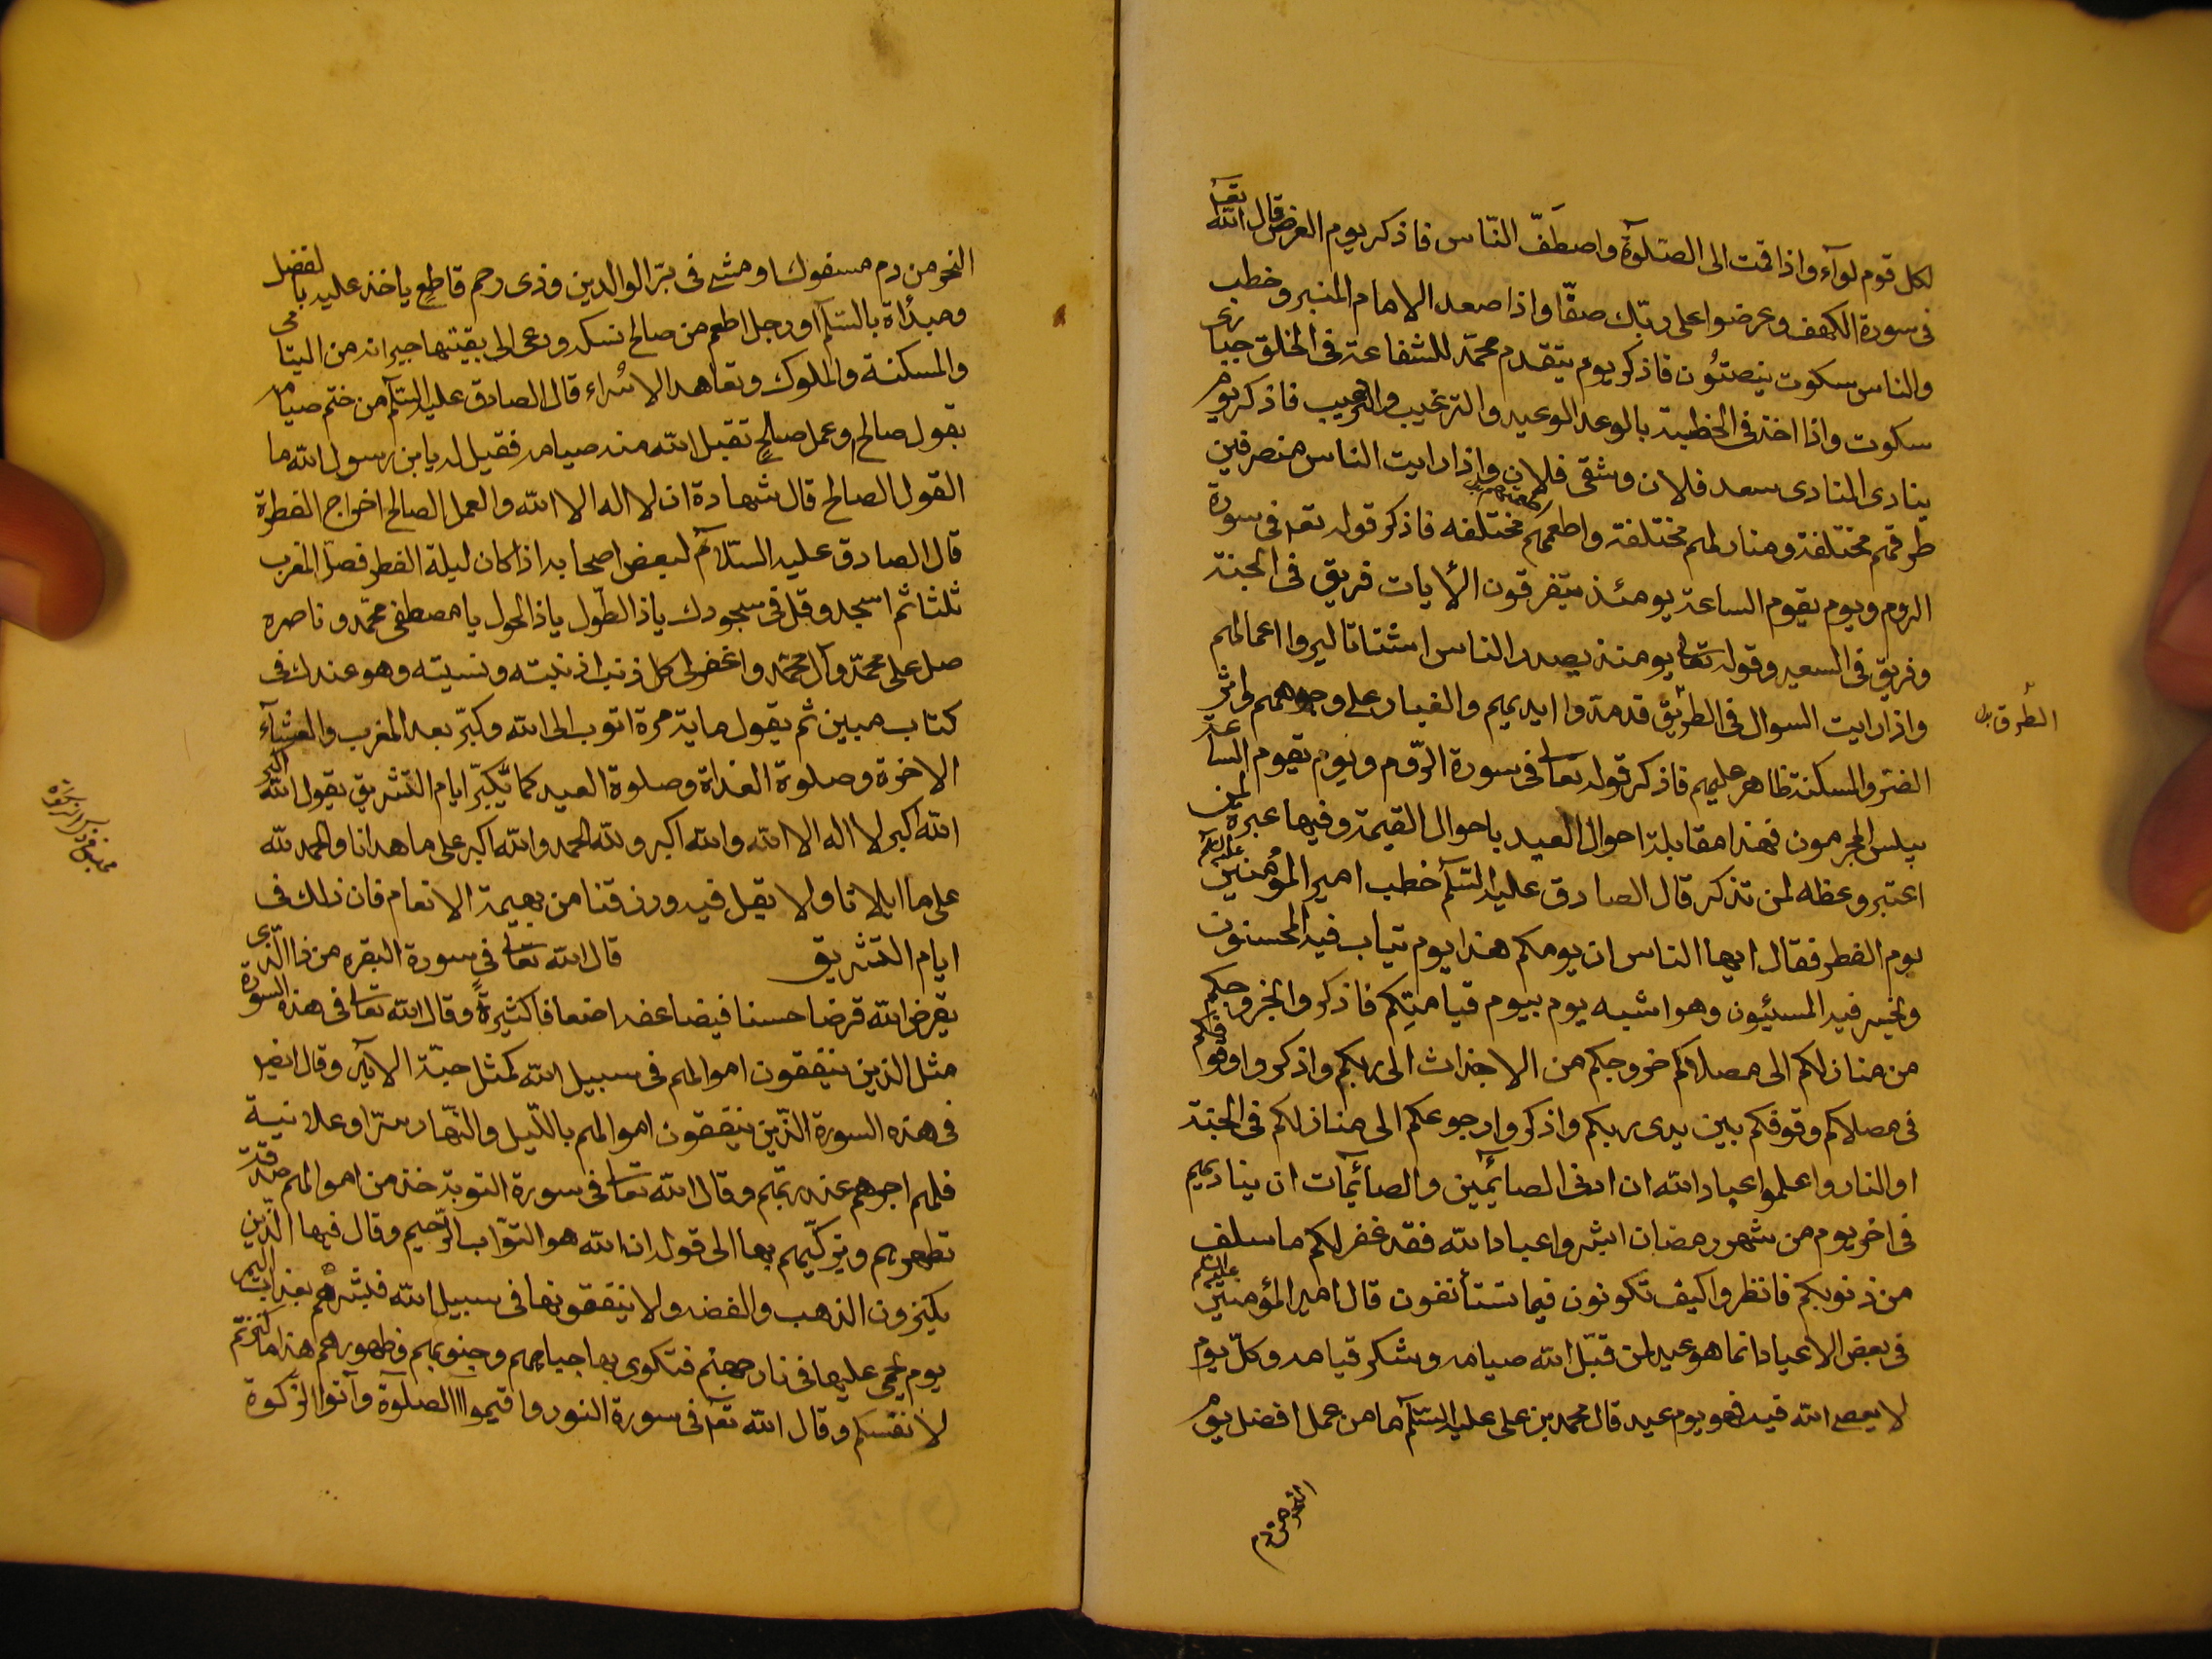 لكل قوم لوآء واذا قمت الى الصّلوة واصطَفّ النّاس فاذكر يوم العرض قال الله تعا
فى سورة الكهف وعرضوا على ربّك صفّا واذا صعد الامام المنبر وخطب
والناس سكوت ينصتُون فاذكر يوم يتقدم محمّد للشفاعة فى الخلق جميا
سكوت واذا اخذ فى الخطبة بالوعد الوعيد والترغيب والترهيب فاذكر يوم
ينادى المنادى سعد فلان وشقى فلان واذا رايت الناس منصرفين
طرقهم مختلفة ومنازلهم مختلفة واطعمهم مختلفه فاذكر قوله تعه فى سورة
الروم ويوم يقوم الساعة يومئذ يتفرقون الأيات فريق فى الجنة
وفريق فى السعير وقوله تعا يومئذ يصدر الناس اشتاتا ليروا اعمالهم
واذا رايت السوال فى الطريق قد مدّوا ايديهم والغبار على وجوههم واثر
الطُرق بدل
الضر والمسكنة ظاهر عليهم فاذكر قوله تعا فى سورة الرّوم ويوم تقوم الساعة
يبلس المجرمون فهذا مقابلة احوال العيد باحوال القيمة وفيها عبرة لمن
اعتبر وعظه لمن تذكر قال الصادق عليه السّلم خطب امير المؤمنين عليه السلم
يوم الفطر فقال ايها الناس ان يومكم هذا يوم يثاب فيه المحسنون
ويخسر فيه المسئيون وهو اشبه يوم بيوم قيامتكم فاذكروا بخروجكم
من منازلكم الى مصلاكم خروجكم من الاجداث الى ربكم واذكروا وقوفكم
فى مصلاكم وقوفكم بين يدى ربكم واذكروا رجوعكم الى منازلكم فى الجنة
او النار واعلموا عباد الله ان ادنى الصائمين والصائمات ان يناديهم
فى اخر يوم من شهر رمضان ابشروا عباد الله فقد غفر لكم ما سلف
من ذنوبكم فانظروا كيف تكونون فيما تستأنفون قال امير المؤمنين عليه السلم
فى بعض الاعياد انما هو عيد لمن قبّل الله صيامه وشكر قيامه وكلّ يوم
لا يعصى الله فيه فهو يوم عيد قال محمد بن على عليه السّلم ما من عمل افضل يوم
النحر من دم
النحر من دم مسفوك او مشى فى برّ الوالدين وذى رحم قاطع ياخذ عليه بالفضل
ومبدأة بالسّلم او رجل اطعم من صالح نسكه ودعى الى بقيتها جيرانه من اليتامى
والمسكنة والملوك وتعاهد الاسُراء قال الصادق عليه السّلم من ختم صيامه
بقول صالح وعمل صالحٍ تقبل الله منه صيامه فقيل له يابن رسول الله ما
القول الصالح قال شهادة ان لا اله الا الله والعمل الصالح اخراج الفطرة
قال الصادق عليه السّلام لبعض اصحابه اذا كان ليلة الفطر فصل المغرب
ثلثا ثم اسجد وقل فى سجودك ياذ الطّول ياذ الحول يا مصطفى محمّد وناصره
صل على محمّد وآل محمّد واغفر لى كل ذنب اذنبته ونسيته وهو عندك فى
كتاب مبين ثم يقول ماية مرة اتوب الى الله وكبّر بعد المغرب والعشآء
الاخرة وصلوة الغداة وصلوة العيد كما تكبّر ايام التشريق يقول الله اكبر
الله اكبر لا اله الا الله والله اكبر ولله الحمد والله اكبر على ما هدانا والحمد لله
على ما ابلانا ولا يقل فيه ورزقنا من بهيمة الانعام فان ذلك فى
ايام التشريق قال الله تعا فى سورة البقره من ذا الّذى
يقرض الله قرضا حسنا فيضاعفه اضعافا كثيرةً وقال الله تعا فى هذه السورة
مثل الذين ينفقون اموالهم فى سبيل الله كمثل حبّة الاية وقال ايضا
فى هذه السورة الذّين ينفقون اموالهم بالليل والنّهار سرّا وعلانية
فلهم اجرهم عند ربّهم وقال الله تعا فى سورة التوبة خذ من اموالهم صدقة
تطهرهم وتزكّيهم بها الى قوله ان الله هو التوّاب الرّحيم وقال فيها الذّين
يكنزون الذهب والفضه ولا ينفقونها فى سبيل الله فبشرهم بعذاب اليم
يوم يحمى عليها فى نار جهنم فتكوى بها جباههم وجنوبهم وظهورهم هذا ما كنزتم
لانفسكم وقال الله تعه فى سورة النور واقيموا الصلوة وآتوا الزكوة
مجلس فى ذكر الزكوة